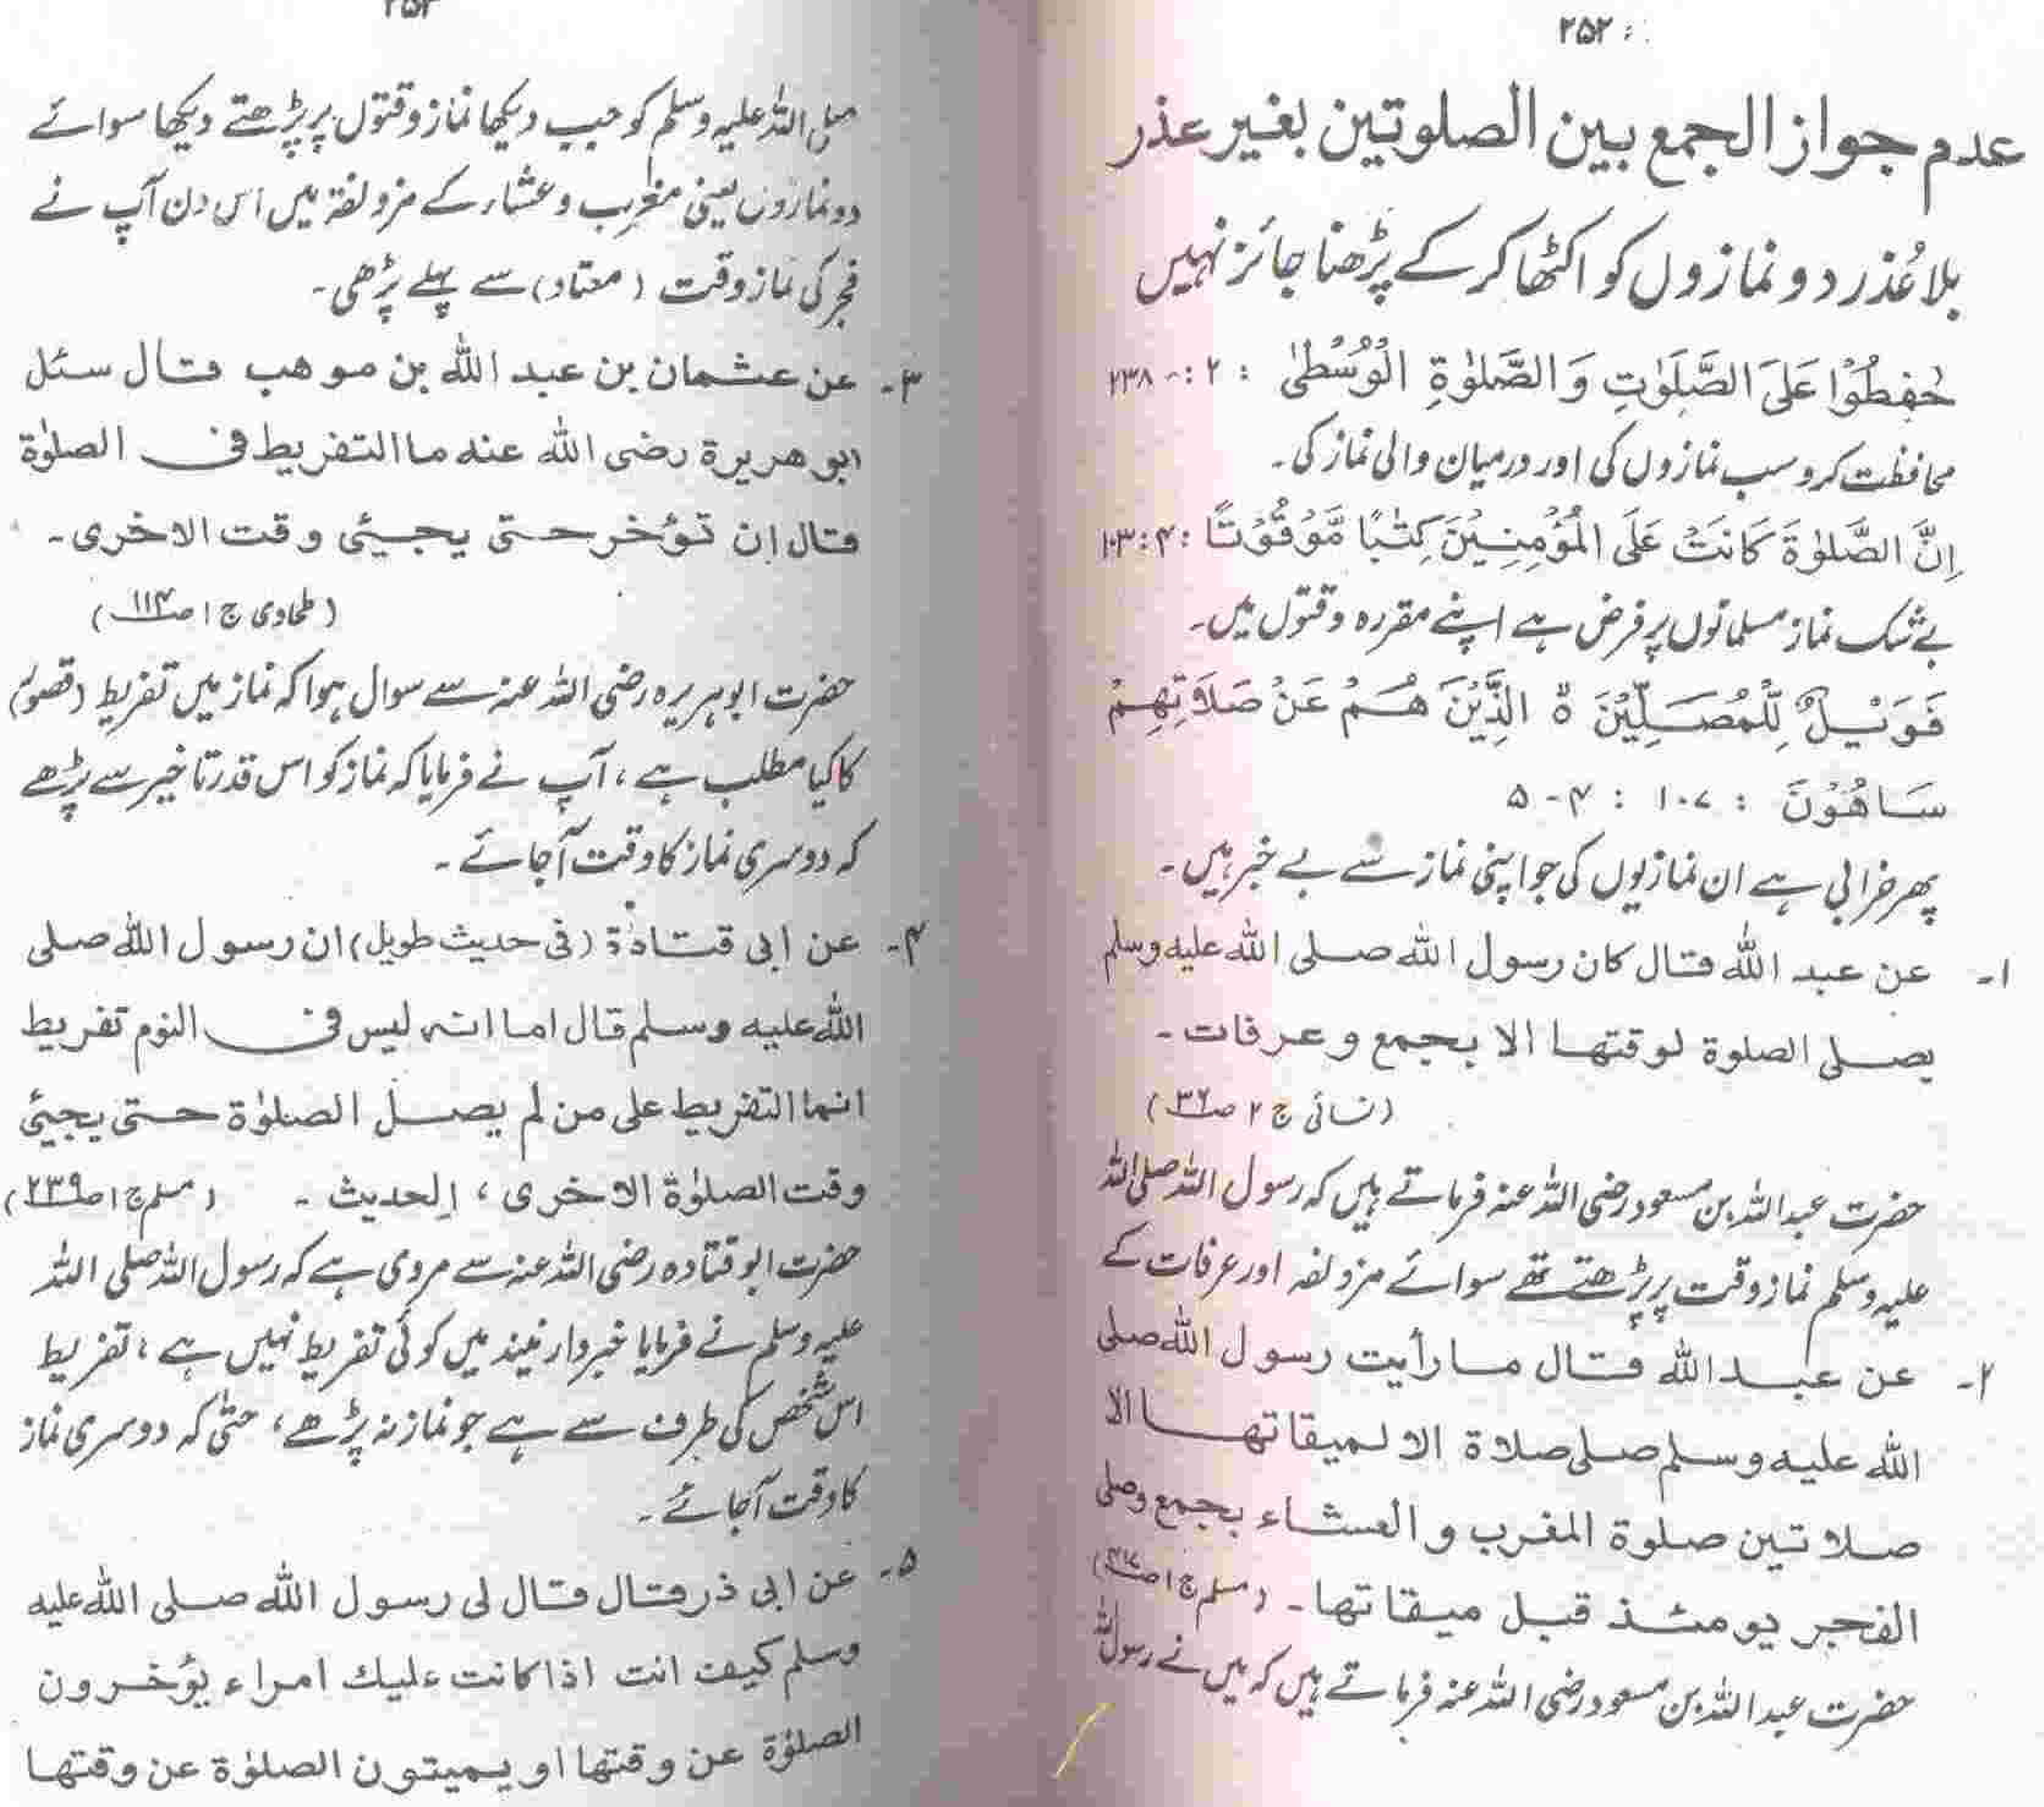 ۲۵۲
عدم جواز الجمع بين الصلوتين بغير عذر
بلا عُذر دو نمازوں کو اکٹھا کر کے پڑھنا جائز نہیں
حٰفِظُوْا عَلَى الصَّلَوٰتِ وَ الصَّلوٰةِ الْوُسْطٰى : ۲ : ۲۳۸
محافظت کرو سب نمازوں کی اور درمیان والی نماز کی۔
اِنَّ الصَّلوٰةَ كَانَتْ عَلَى الْمُؤْمِنِيْنَ كِتٰبًا مَّوْقُوْتًا : ۴ : ۱۰۳
بے شک نماز مسلمانوں پر فرض ہے اپنے مقررہ وقتوں میں۔
فَوَيْلٌ لِّلْمُصَلِّيْنَ ۵ الَّذِيْنَ هُمْ عَنْ صَلَاتِهِمْ
سَاهُوْنَ : ۱۰۷ : ۴ - ۵
پھر خرابی ہے ان نمازیوں کی جو اپنی نماز سے بے خبر ہیں۔
۱۔ عن عبد الله قال كان رسول الله صلى الله عليه وسلم
يصلى الصلوة لوقتها الا بجمع وعرفات ۔
(نسائی ج ۲ ص۳۶)
حضرت عبداللہ بن مسعود رضی اللہ عنہ فرماتے ہیں کہ رسول اللہ صلی اللہ
علیہ وسلم نماز وقت پر پڑھتے تھے سوائے مزدلفہ اور عرفات کے
۲۔ عن عبد الله قال ما رأيت رسول الله صلى
الله عليه وسلم صلى صلاة الا لميقاتها الا
صلاتين صلوة المغرب و العشاء بجمع وصلى
الفجر يومئذ قبل ميقاتها۔ (مسلم ج۱ ص۴۱۷)
حضرت عبداللہ بن مسعود رضی اللہ عنہ فرماتے ہیں کہ میں نے رسول اللہ
۲۵۳
صلی اللہ علیہ وسلم کو جب دیکھا نماز وقتوں پر پڑھتے دیکھا سوائے
دو نمازوں یعنی مغرب و عشاء کے مزدلفۃ میں اس دن آپ نے
فجر کی نماز وقت (معتاد) سے پہلے پڑھی۔
۳۔ عن عثمان بن عبد الله بن موهب قال سئل
ابو هريرة رضى الله عنه ما التفريط فى الصلوٰة
قال ان تؤخر حتى يجيئى وقت الاخرى۔
(طحاوی ج ۱ ص۱۱۴)
حضرت ابوہریرہ رضی اللہ عنہ سے سوال ہوا کہ نماز میں تفریط (قصور)
کا کیا مطلب ہے، آپ نے فرمایا کہ نماز کو اس قدر تاخیر سے پڑھے
کہ دوسری نماز کا وقت آ جائے ۔
۴۔ عن ابى قتادة (فى حديث طويل) ان رسول الله صلى
الله عليه وسلم قال اما انه ليس فى النوم تفريط
انما التفريط على من لم يصل الصلوٰة حتى يجيئى
وقت الصلوٰة الاخرى، الحديث ۔ (مسلم ج۱ ص۲۳۹)
حضرت ابو قتادہ رضی اللہ عنہ سے مروی ہے کہ رسول اللہ صلی اللہ
علیہ وسلم نے فرمایا خبردار نیند میں کوئی تفریط نہیں ہے، تفریط
اس شخص کی طرف سے ہے جو نماز نہ پڑھے، حتیٰ کہ دوسری نماز
کا وقت آ جائے ۔
۵۔ عن ابى ذر قال قال لى رسول الله صلى الله عليه
وسلم كيف انت اذا كانت عليك امراء يؤخرون
الصلوٰة عن وقتها او يميتون الصلوٰة عن وقتها